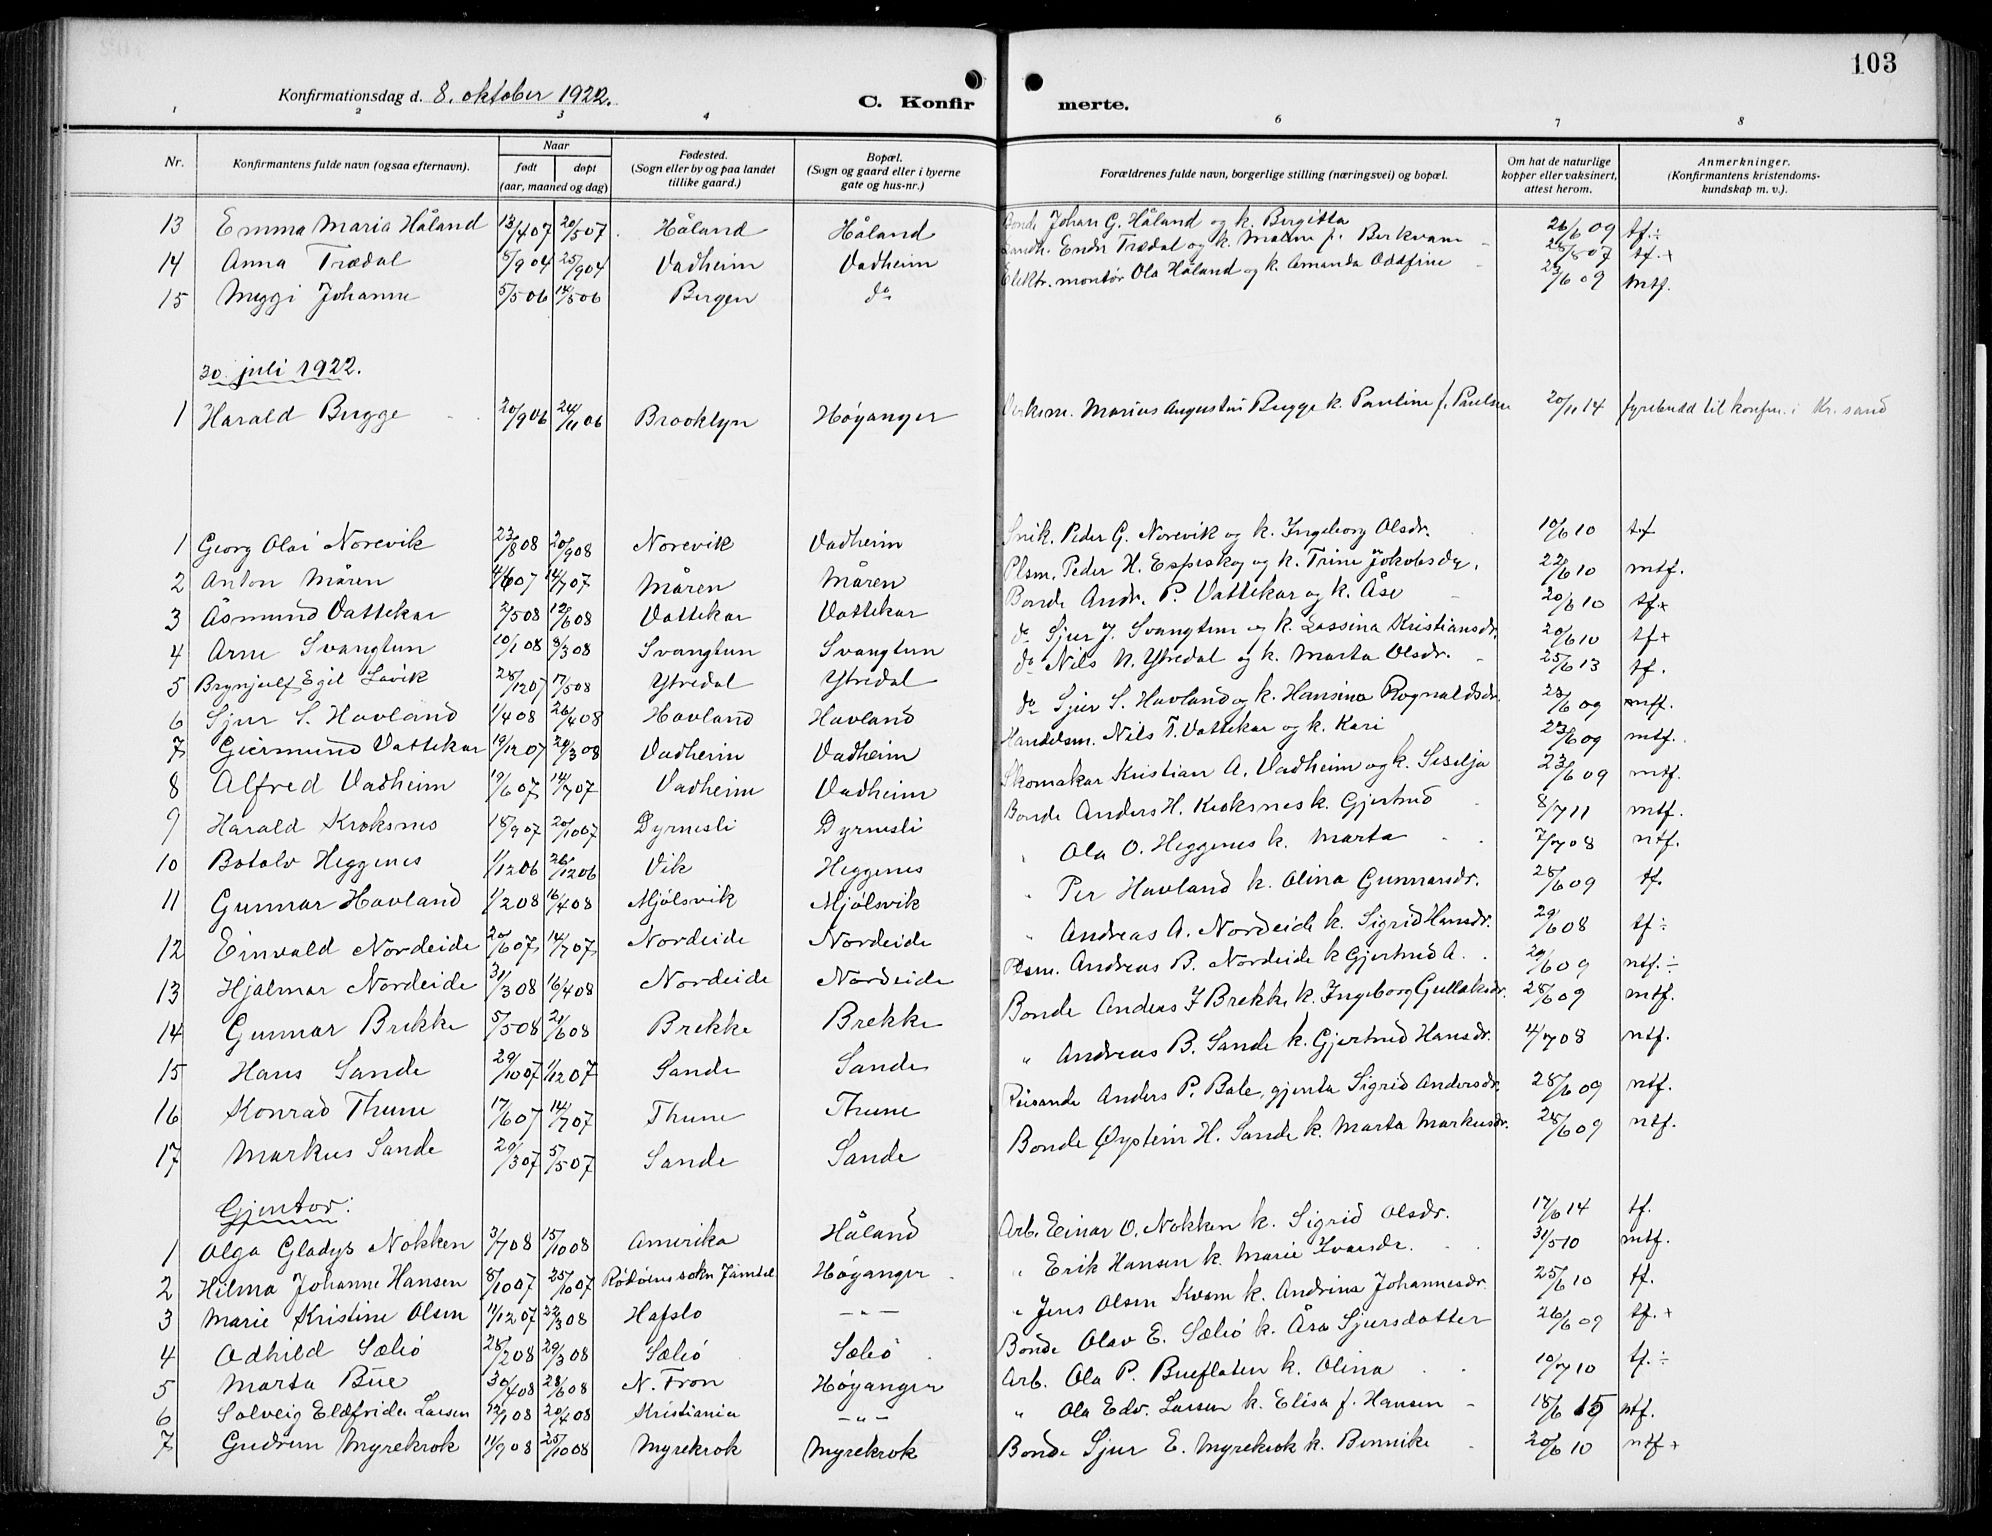 103
Konfirmationsdag d. 8. oktober 1922.
C. Konfirmerte.
1 2 3 4 6 7 8
Nr. Konfirmantens fulde navn (ogsaa efternavn). Naar født døpt (aar, maaned og dag) Fødested. (Sogn eller by og paa landet tillike gaard.) Bopæl. (Sogn og gaard eller i byerne gate og hus-nr.) Forældrenes fulde navn, borgerlige stilling (næringsvei) og bopæl. Om hat de naturlige kopper eller vaksinert, attest herom. Anmerkninger. (Konfirmantens kristendomskundskap m. v.).
13 Emma Maria Håland 13/4 07 20/5 07 Håland Håland Bonde Johan G. Håland og k. Bergitta 26/6 09 tf. ÷
14 Anna Trædal 8/9 04 25/9 04 Vadheim Vadheim Landh. Endr. Trædal og k. Malene f. Berkvam 28/8 07 tf. +
15 Meggi Johanne 5/5 06 14/5 06 Bergen do Elektr. montør Ola Håland og k. Amanda Oddfrine 23/6 09 mtf.
30. juli 1922.
1 Harald Bugge 20/9 06 24/11 06 Brooklyn Høyanger Verksm. Marius Augustin Bugge k. Pauline f. Paulsen 20/11 14 fyrebudd til konfm. i Kr.sand
1 Georg Olai Norevik 23/8 08 20/9 08 Norevik Vadheim Snik. Peder G. Norevik og k. Ingeborg Olsdr. 10/6 10 tf
2 Anton Måren 4/6 07 14/7 07 Måren Måren Plsm. Peder H. Espeskog og k. Trine Jakobsdr. 22/6 10 mtf.
3 Åsmund Vattekar 2/5 08 12/6 08 Vattekar Vattekar Bonde Andr. P. Vattekar og k. Åse 20/6 10 tf. +
4 Arne Svangtun 10/1 08 8/3 08 Svangtun Svangtun do Sjur J. Svangtun og k. Lassina Kristiansdr. 20/6 10 tf +
5 Brynjulf Egil Lavik 28/12 07 17/5 08 Ytredal Ytredal do Nils N. Ytredal og k. Marta Olsdr. 25/6 13 tf.
6 Sjur S. Havland 1/4 08 26/4 08 Havland Havland do Sjur S. Havland og k. Hansina Rognaldsdr. 28/6 09 mtf.
7 Geirmund Vattekar 19/12 07 20/3 08 Vadheim Vadheim Handelsm. Nils T. Vattekar og k. Kari 23/6 09 mtf.
8 Alfred Vadheim 19/6 07 14/7 07 Vadheim Vadheim Skomakar Kristian A. Vadheim og k. Sesilja 23/6 09 mtf.
9 Harald Kroksnes 18/9 07 20/10 07 Dyrnesli Dyrnesli Bonde Anders H. Kroksnes k. Gjertrud 8/7 11 mtf.
10 Botolv Heggenes 1/12 06 26/12 06 Vik Heggenes " Ola O. Heggenes k. Marta 7/7 08 ntf.
11 Gunnar Havland 1/2 08 16/4 08 Mjølsvik Mjølsvik " Per Havland k. Olina Gunnarsdr. 28/6 09 tf.
12 Einvald Nordeide 20/6 07 14/7 07 Nordeide Nordeide " Andreas A. Nordeide k. Sigrid Hansdr. 29/6 08 tf ÷
13 Hjalmar Nordeide 31/3 08 16/4 08 Nordeide Nordeide Plsm. Andreas B. Nordeide k Gjertrud A. 29/6 09 ntf. ÷
14 Gunnar Brekke 5/5 08 21/6 08 Brekke Brekke Bonde Andeas J Brekke k. Ingeborg Gullaksdr. 28/6 09 mtf.
15 Hans Sande 29/10 07 1/12 07 Sande Sande " Andreas B. Sande k. Gjertrud Hansdr. 4/7 08 ntf.
16 Konrad Thune 17/6 07 14/7 07 Thune Thune Reisande Anders P. Bale, gjenta Sigrid Andersdr. 28/6 09 ntf.
17 Markus Sande 29/3 07 5/5 07 Sande Sande Bonde Øystein H. Sande k. Marta Markusdr. 28/6 09 ntf.
Gjentor:
1 Olga Gladys Nokken 3/7 08 15/10 08 Amerika Håland Arb. Einar O. Nokken k. Sigrid Olsdr. 17/6 14 tf.
2 Hilma Johanne Hansen 8/10 07 25/10 07 Rødøens sokn Jämtel Høyanger " Erik Hansen k. Marie Ivarsdr. 31/5 10 mtf.
3 Marie Kristine Olsen 11/12 07 22/3 08 Hafslo —"— " Jens Olsen Kvam k. Andrine Johannesdr. 25/6 10 tf.
4 Odhild Sæleø 28/2 08 29/3 08 Sæleø Sæleø Bonde Olav E. Sæleø k. Åsa Sjursdotter 26/6 09 tf. +
5 Marta Bue 30/4 08 28/6 08 N. Fron Høyanger Arb. Ola P. Bueflaten k. Olina 10/7 10 tf. ÷
6 Solveig Eldfrida Larsen 12/1 08 20/4 08 Kristiania —"— " Ola Edv. Larsen k. Elisa f. Hansen 18/6 15 ntf.
7 Gudrun Myrekrok 11/9 08 25/10 08 Myrekrok Myrekrok Bonde Sjur E. Myrekrok k. Bennike 20/6 10 ntf +